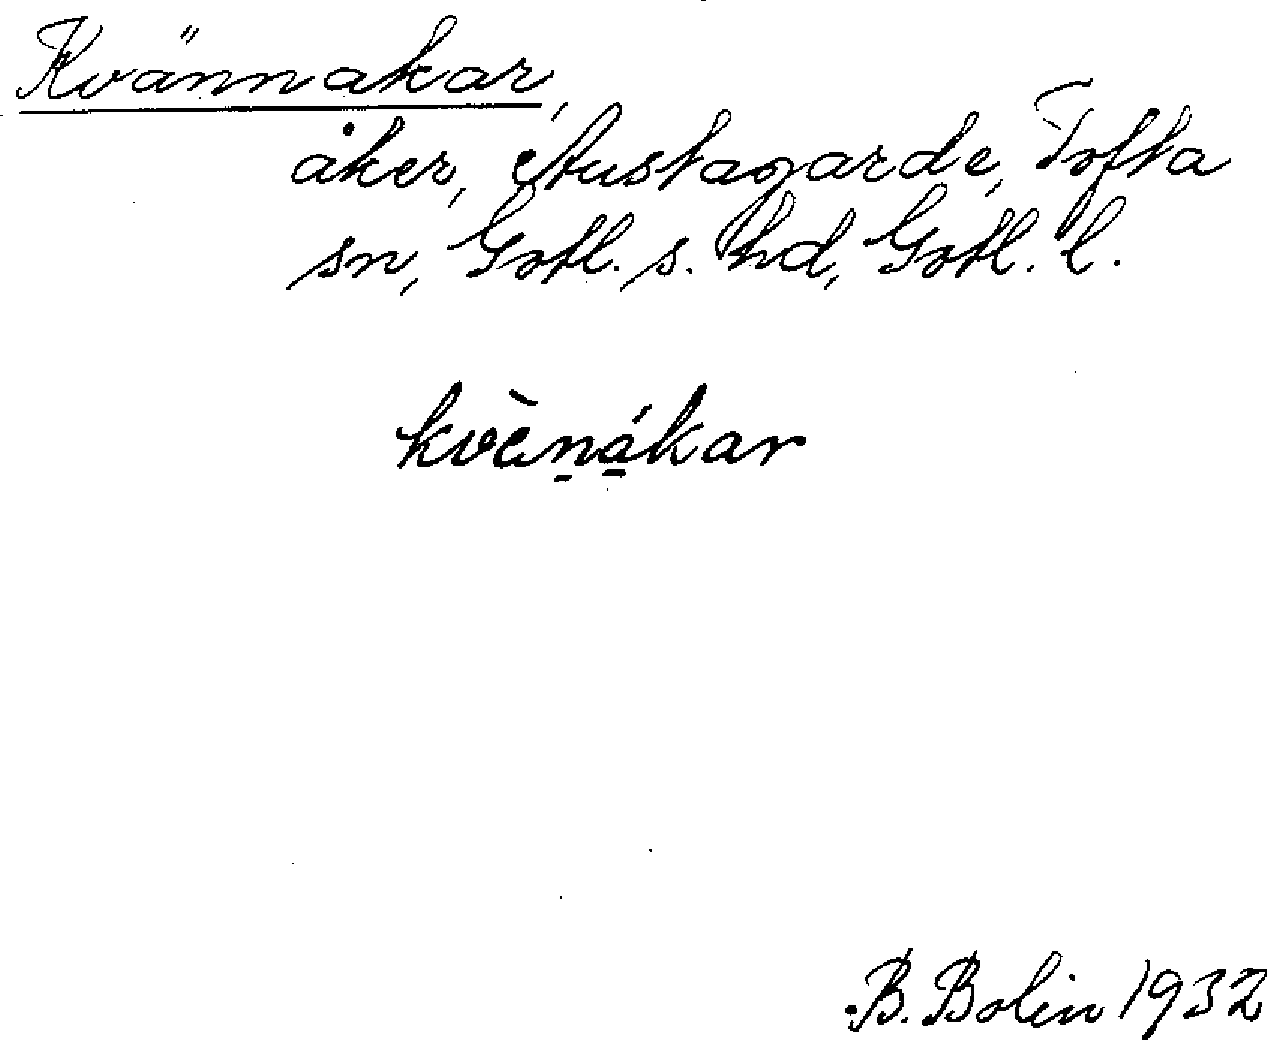 Kvännakar,
åker, Austagarde, Tofta
sn, Gotl. s. hd, Gotl. l.
kvènákar
B. Bolin 1932